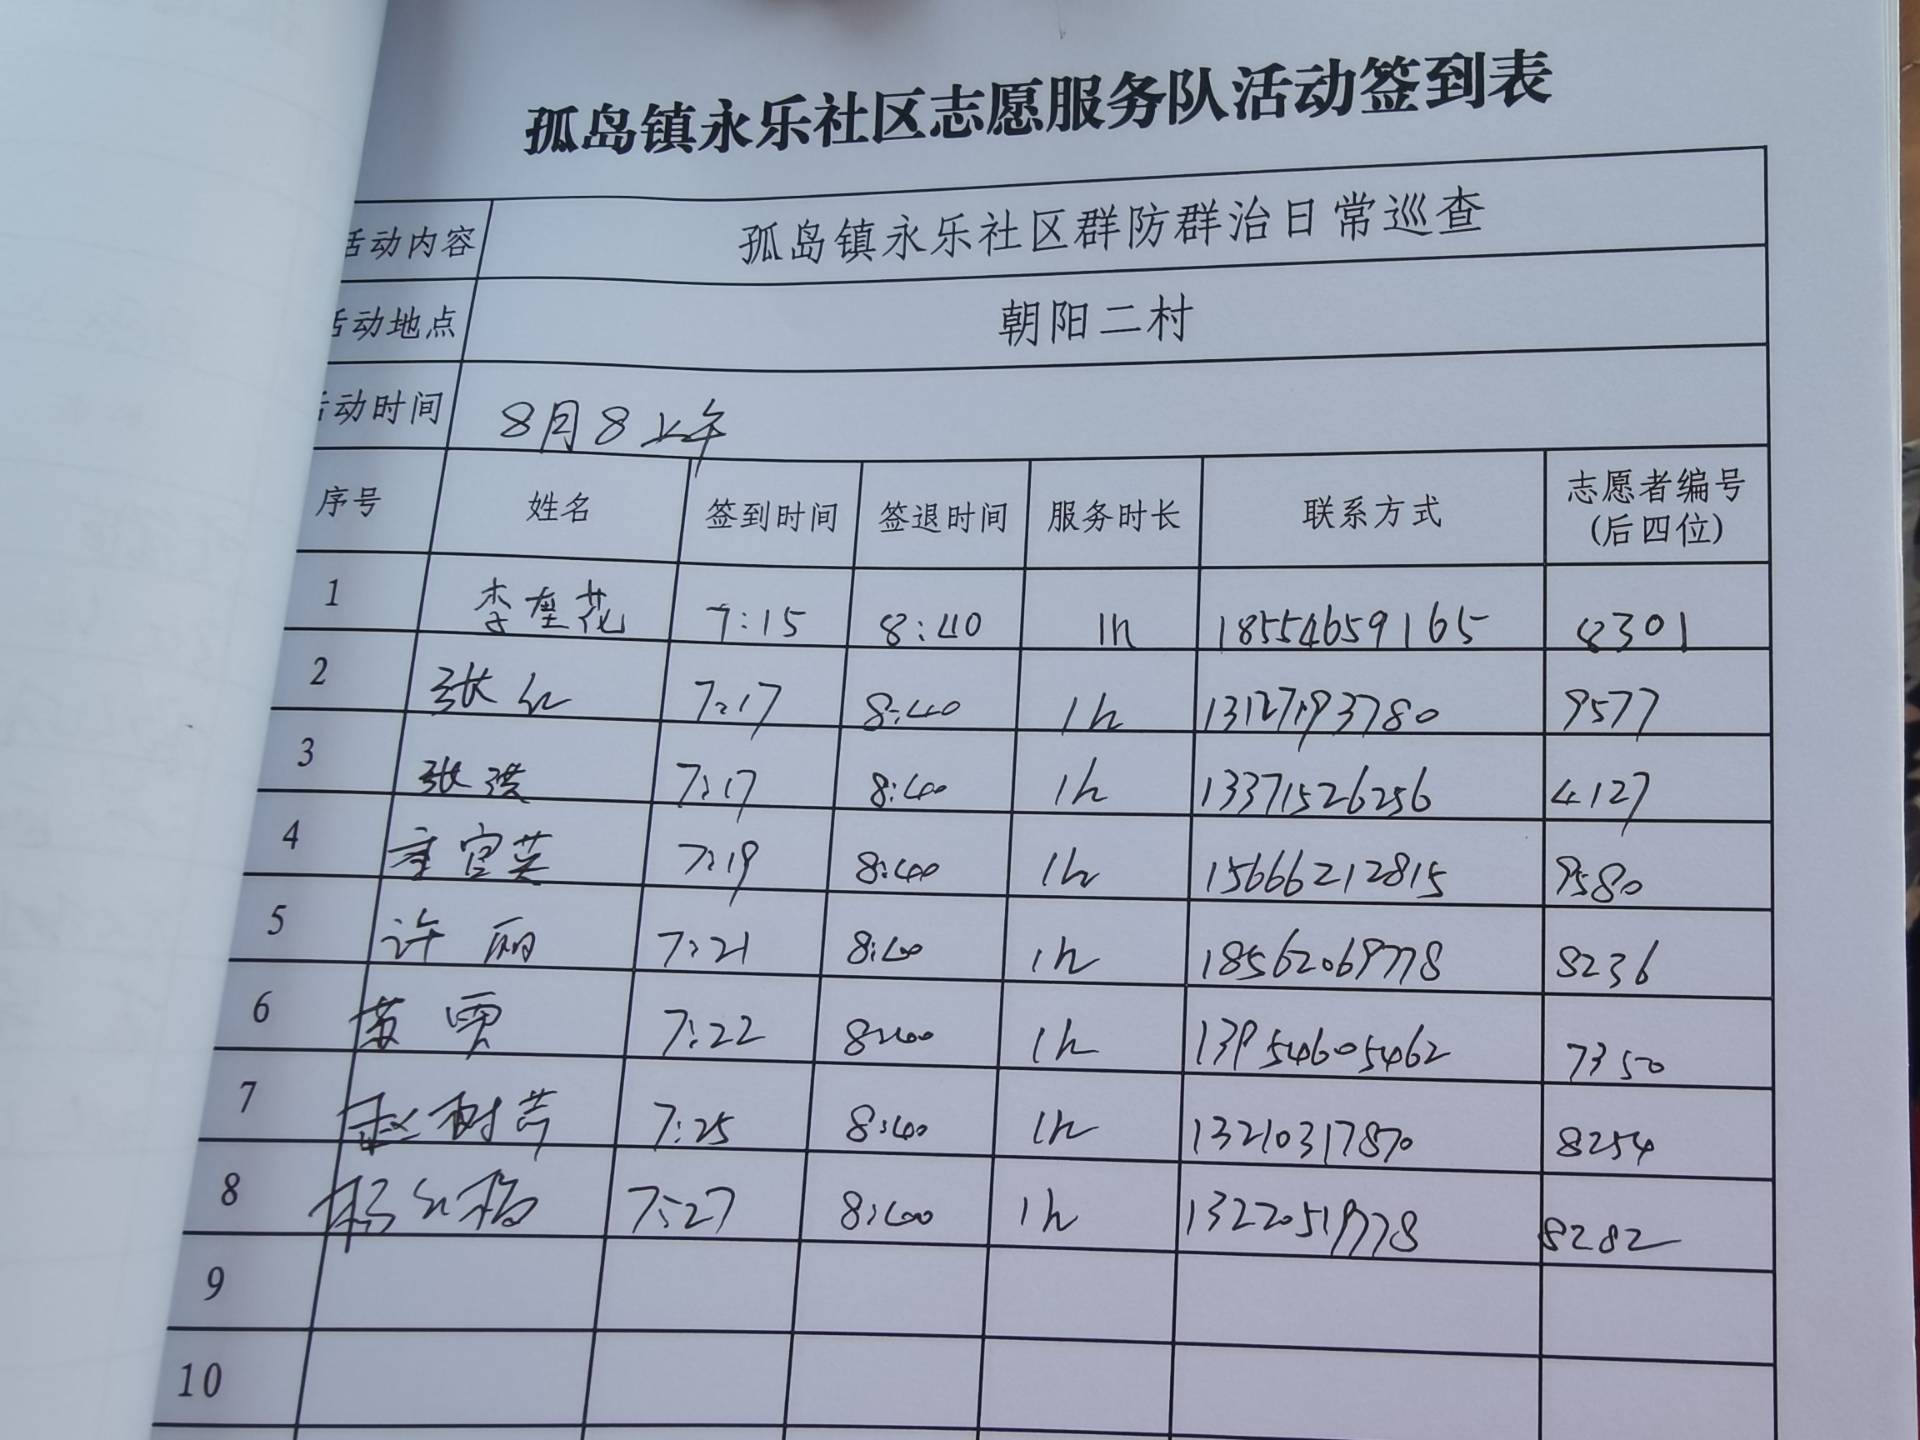 孤岛镇永乐社区志愿服务队活动签到表
活动内容 孤岛镇永乐社区群防群治日常巡查
活动地点 朝阳二村
活动时间 8月8上午
序号 姓名 签到时间 签退时间 服务时长 联系方式 志愿者编号
(后四位)
1 李奎花 7:15 8:40 1h 18554659165 8301
2 张红 7:17 8:40 1h 13127193780 9577
3 张洪 7:17 8:40 1h 13371526256 4127
4 官英 7:19 8:40 1h 15666212815 9580
5 许丽 7:21 8:40 1h 18562069778 8236
6 7:22 8:40 1h 13954605462 7350
7 赵树芹 7:25 8:40 1h 13210317870 8254
8 杨红梅 7:27 8:40 1h 13220519778 8282
9
10